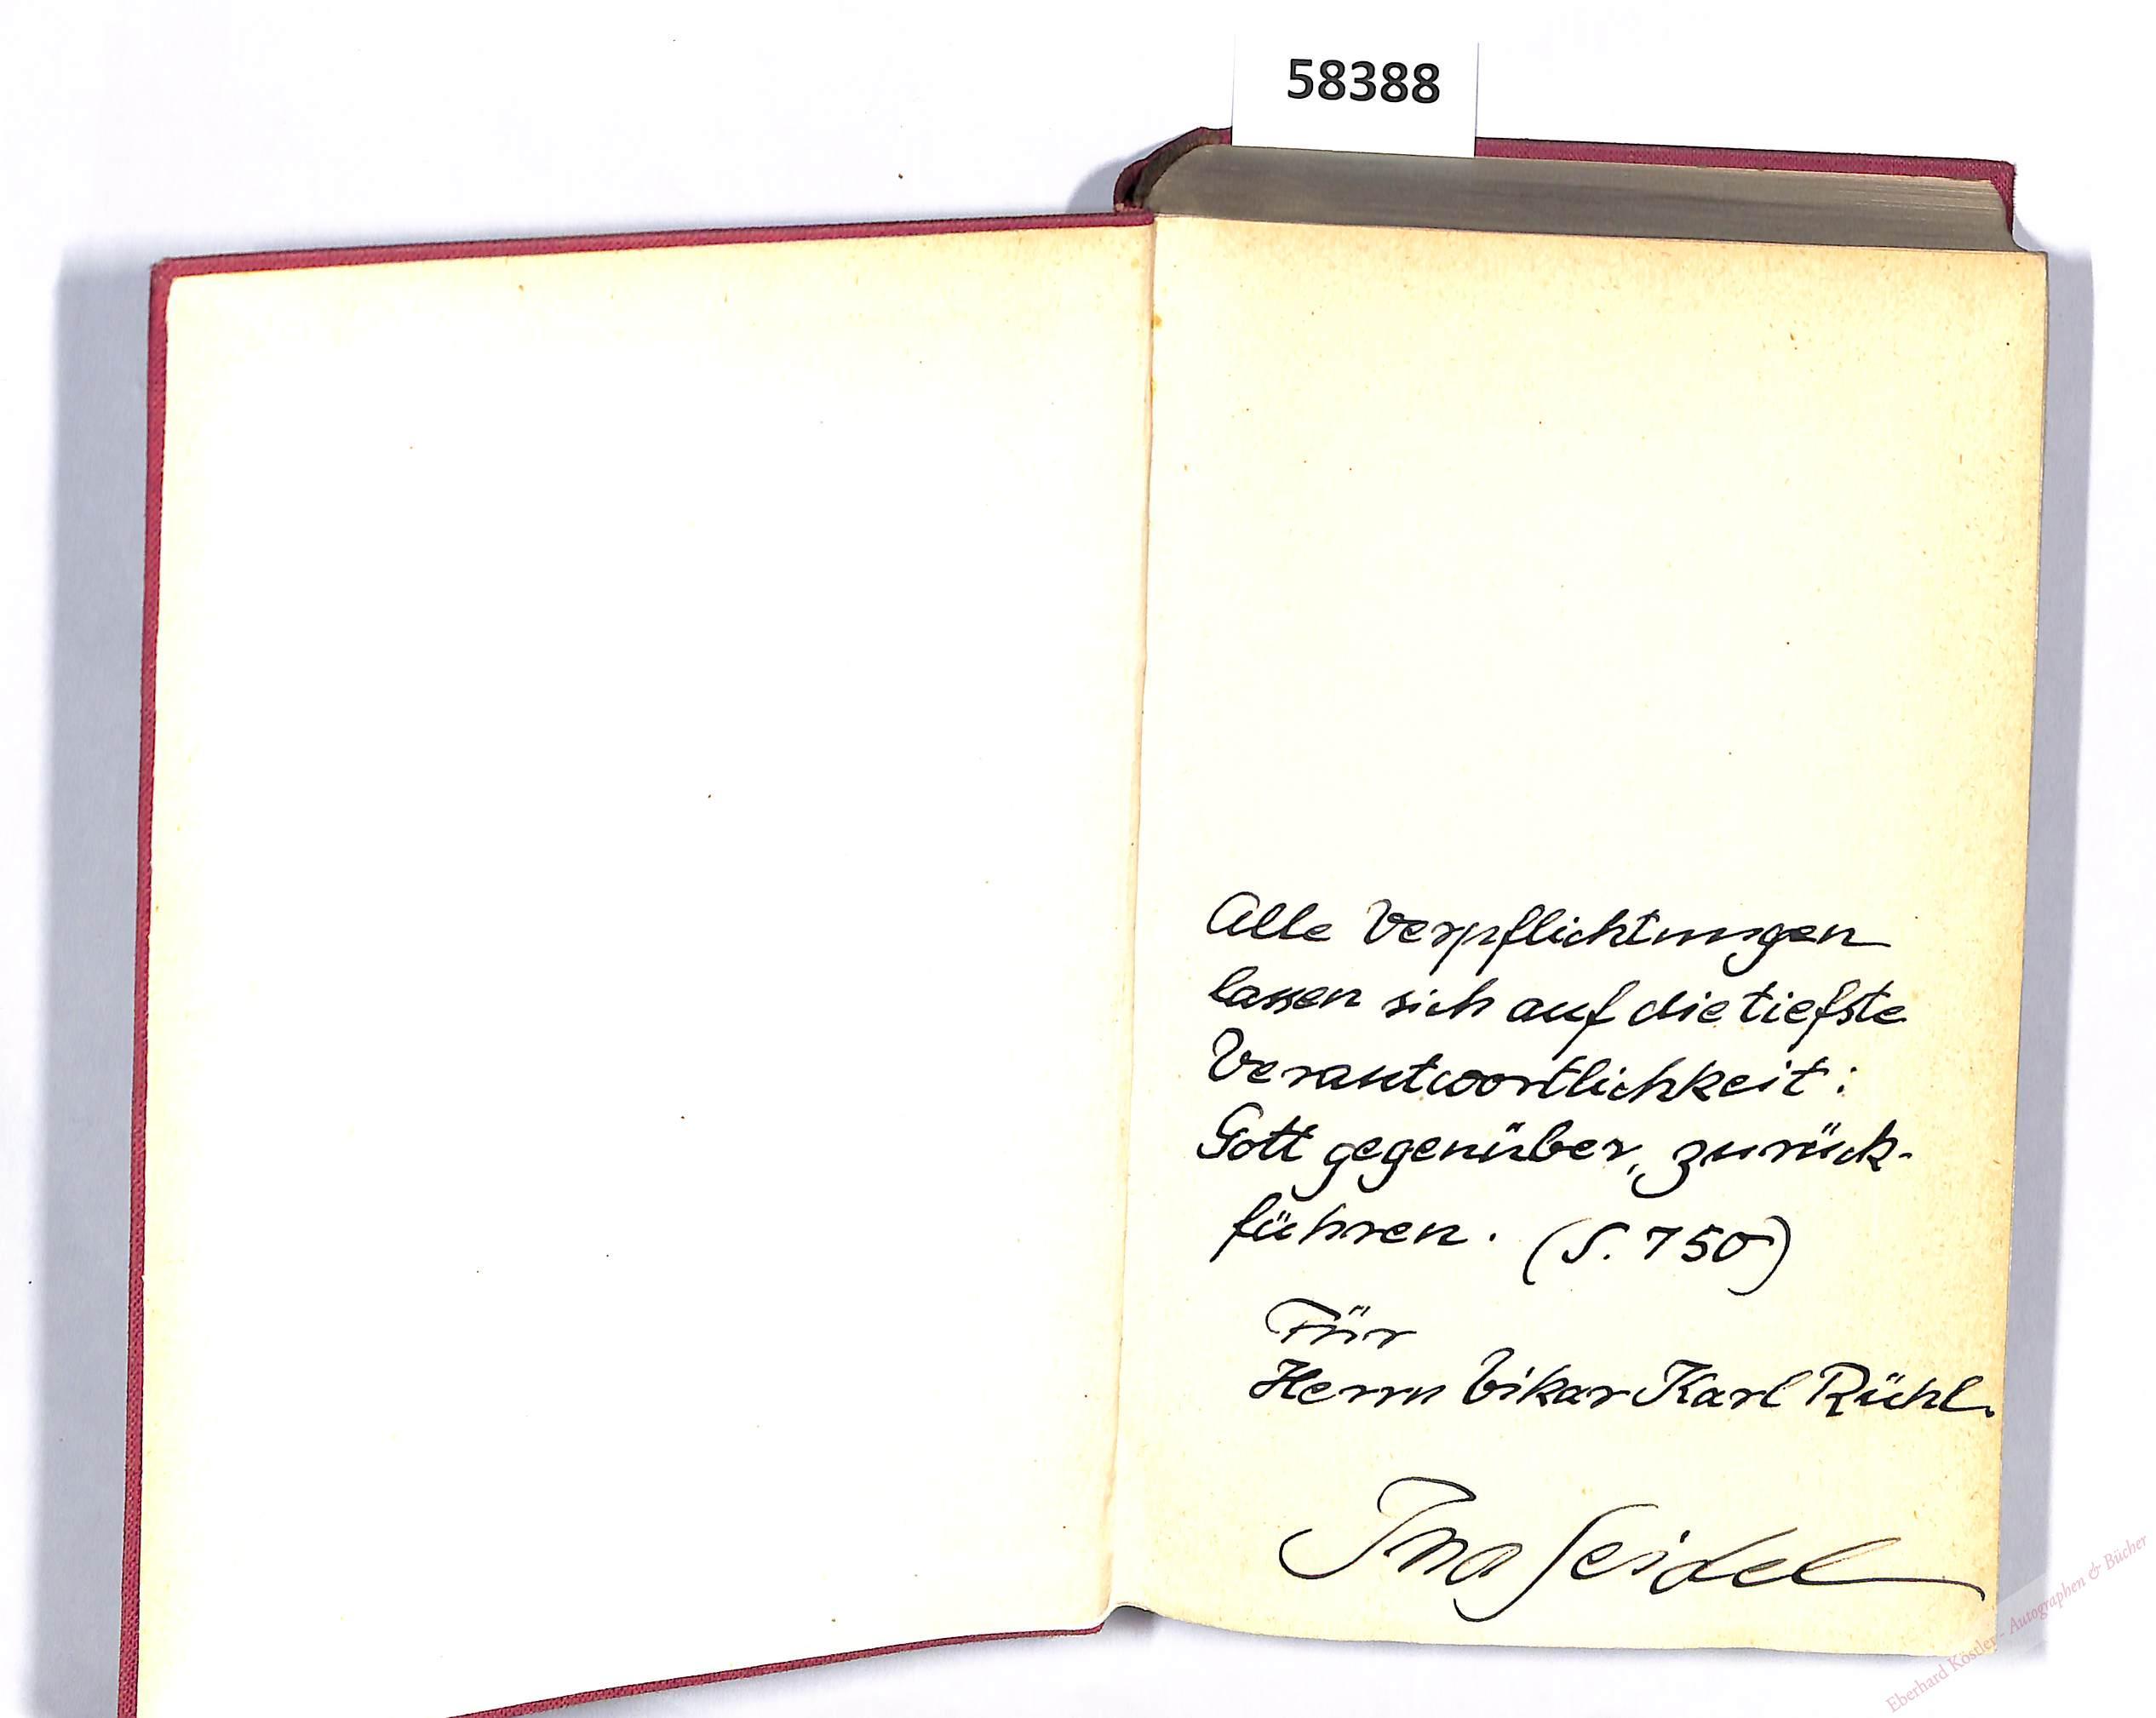 58388
Alle Verpflichtungen
lassen sich auf die tiefste
Verantwortlichkeit:
Gott gegenüber, zurück-
führen. (S. 750)
Für
Herrn Vikar Karl Rühl.
Ina Seidel
Eberhard Köstler - Autographen & Bücher